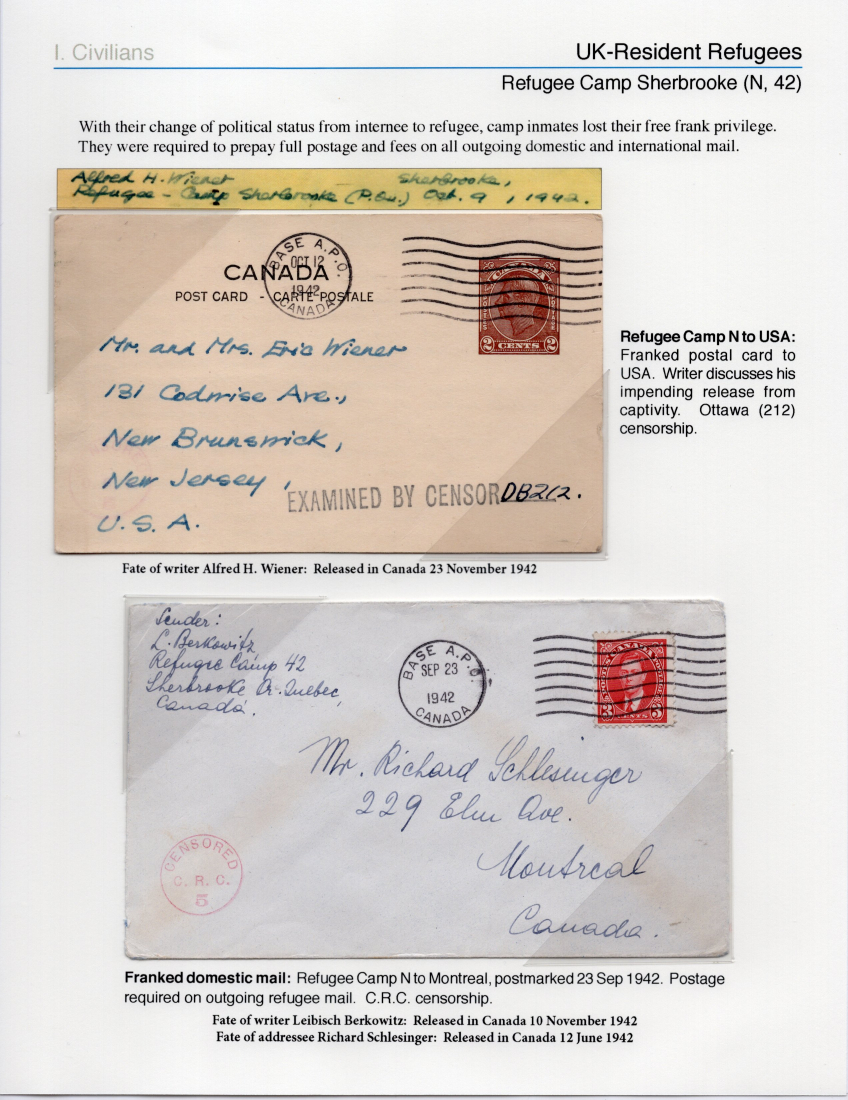 I. Civilians
UK-Resident Refugees
Refugee Camp Sherbrooke (N, 42)
With their change of political status from internee to refugee, camp inmates lost their free frank privilege.
They were required to prepay full postage and fees on all outgoing domestic and international mail.
Alfred H. Wiener Sherbrooke,
Refugee - Camp Sherbrooke (P.Qu.) Oct. 9, 1942.
BASE A.P.O.
OCT 12
1942
CANADA
CANADA
POST CARD - CARTE POSTALE
CANADA
2 CENTS 2
Mr. and Mrs. Eric Wiener
131 Codwise Ave.,
New Brunswick,
New Jersey,
U.S.A.
EXAMINED BY CENSOR DB212.
Refugee Camp N to USA:
Franked postal card to
USA. Writer discusses his
impending release from
captivity. Ottawa (212)
censorship.
Fate of writer Alfred H. Wiener: Released in Canada 23 November 1942
Sender:
L. Berkowitz
Refugee Camp 42
Sherbrooke Qr. Quebec,
Canada.
BASE A.P.O.
SEP 23
1942
CANADA
CANADA
3 CENTS 3
Mr. Richard Schlesinger
229 Elm Ave.
Montreal
Canada.-
CENSORED
C. R. C.
5
Franked domestic mail: Refugee Camp N to Montreal, postmarked 23 Sep 1942. Postage
required on outgoing refugee mail. C.R.C. censorship.
Fate of writer Leibisch Berkowitz: Released in Canada 10 November 1942
Fate of addressee Richard Schlesinger: Released in Canada 12 June 1942